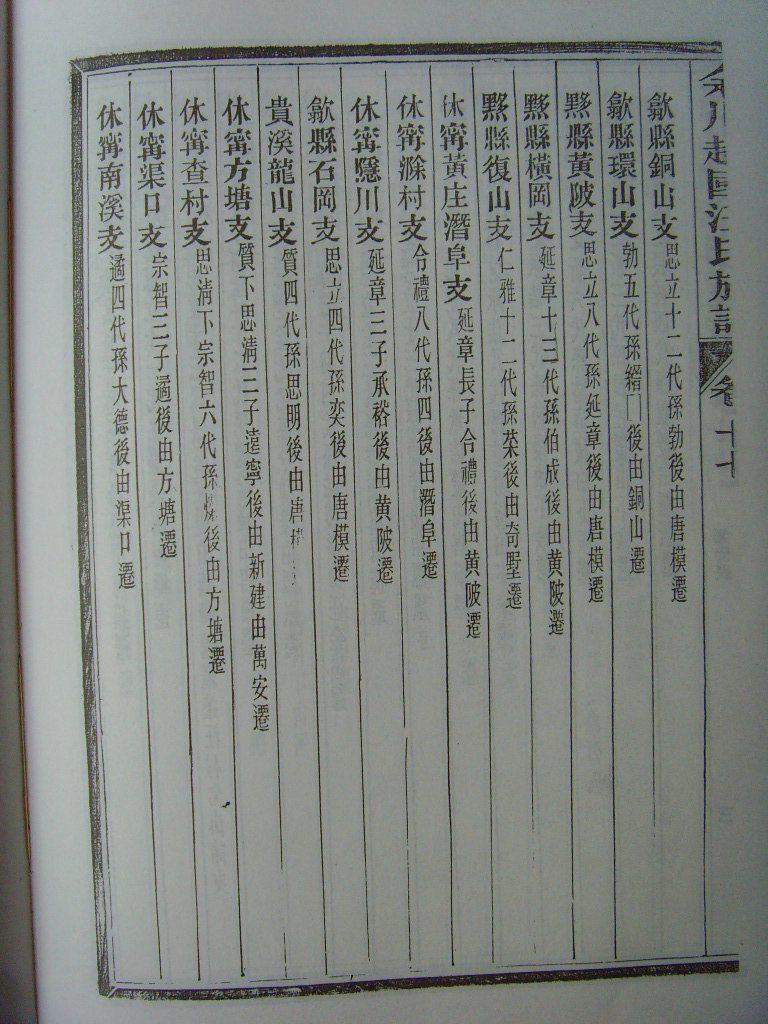 趙國汪氏族譜 卷十七
歙縣銅山支 思立十二代孫勃後由唐模遷
歙縣環山支 勃五代孫縉後由銅山遷
黟縣黃陂支 思立八代孫延章後由唐模遷
黟縣橫岡支 延章十三代孫伯成後由黄陂遷
黟縣復山支 仁雅十二代孫後由奇墅遷
休寗黃庄潛阜支 延章長子令禮後由黄陂遷
休寗滁村支 令禮八代孫四後由潛阜遷
休寗隱川支 延章三子承裕後由黄陂遷
歙縣石岡支 思立四代孫奕後由唐模遷
貴溪龍山支 質四代孫思明後由唐
休寗方塘支 質下思淸三子遠寧後由新建由萬安遷
休寗查村支 思淸下宗智六代孫後由方塘遷
休寗渠口支 宗智三子遹後由方塘遷
休寗南溪支 遹四代孫大德後由渠口遷